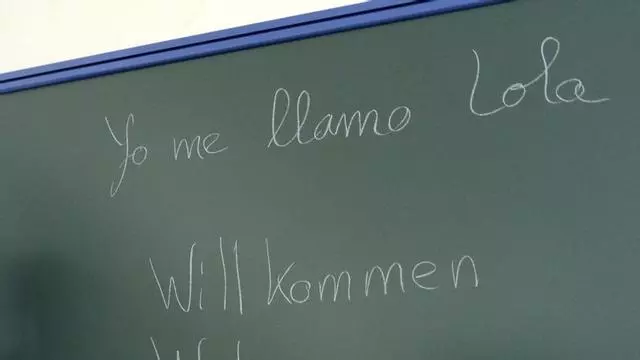 Yo me llamo Lola
Willkommen